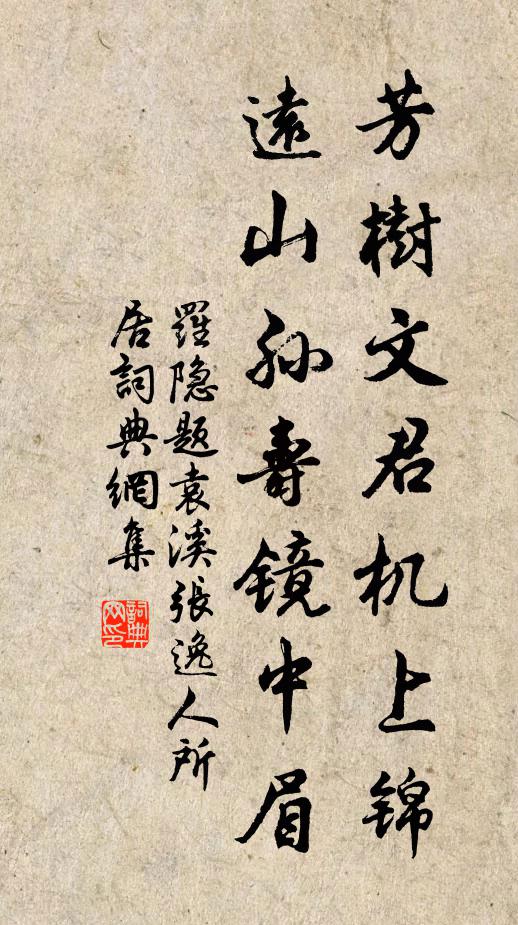 芳樹文君机上錦
遠山孙壽鏡中眉
羅隐题袁溪張逸人所
居詞典網集
詞典
网印